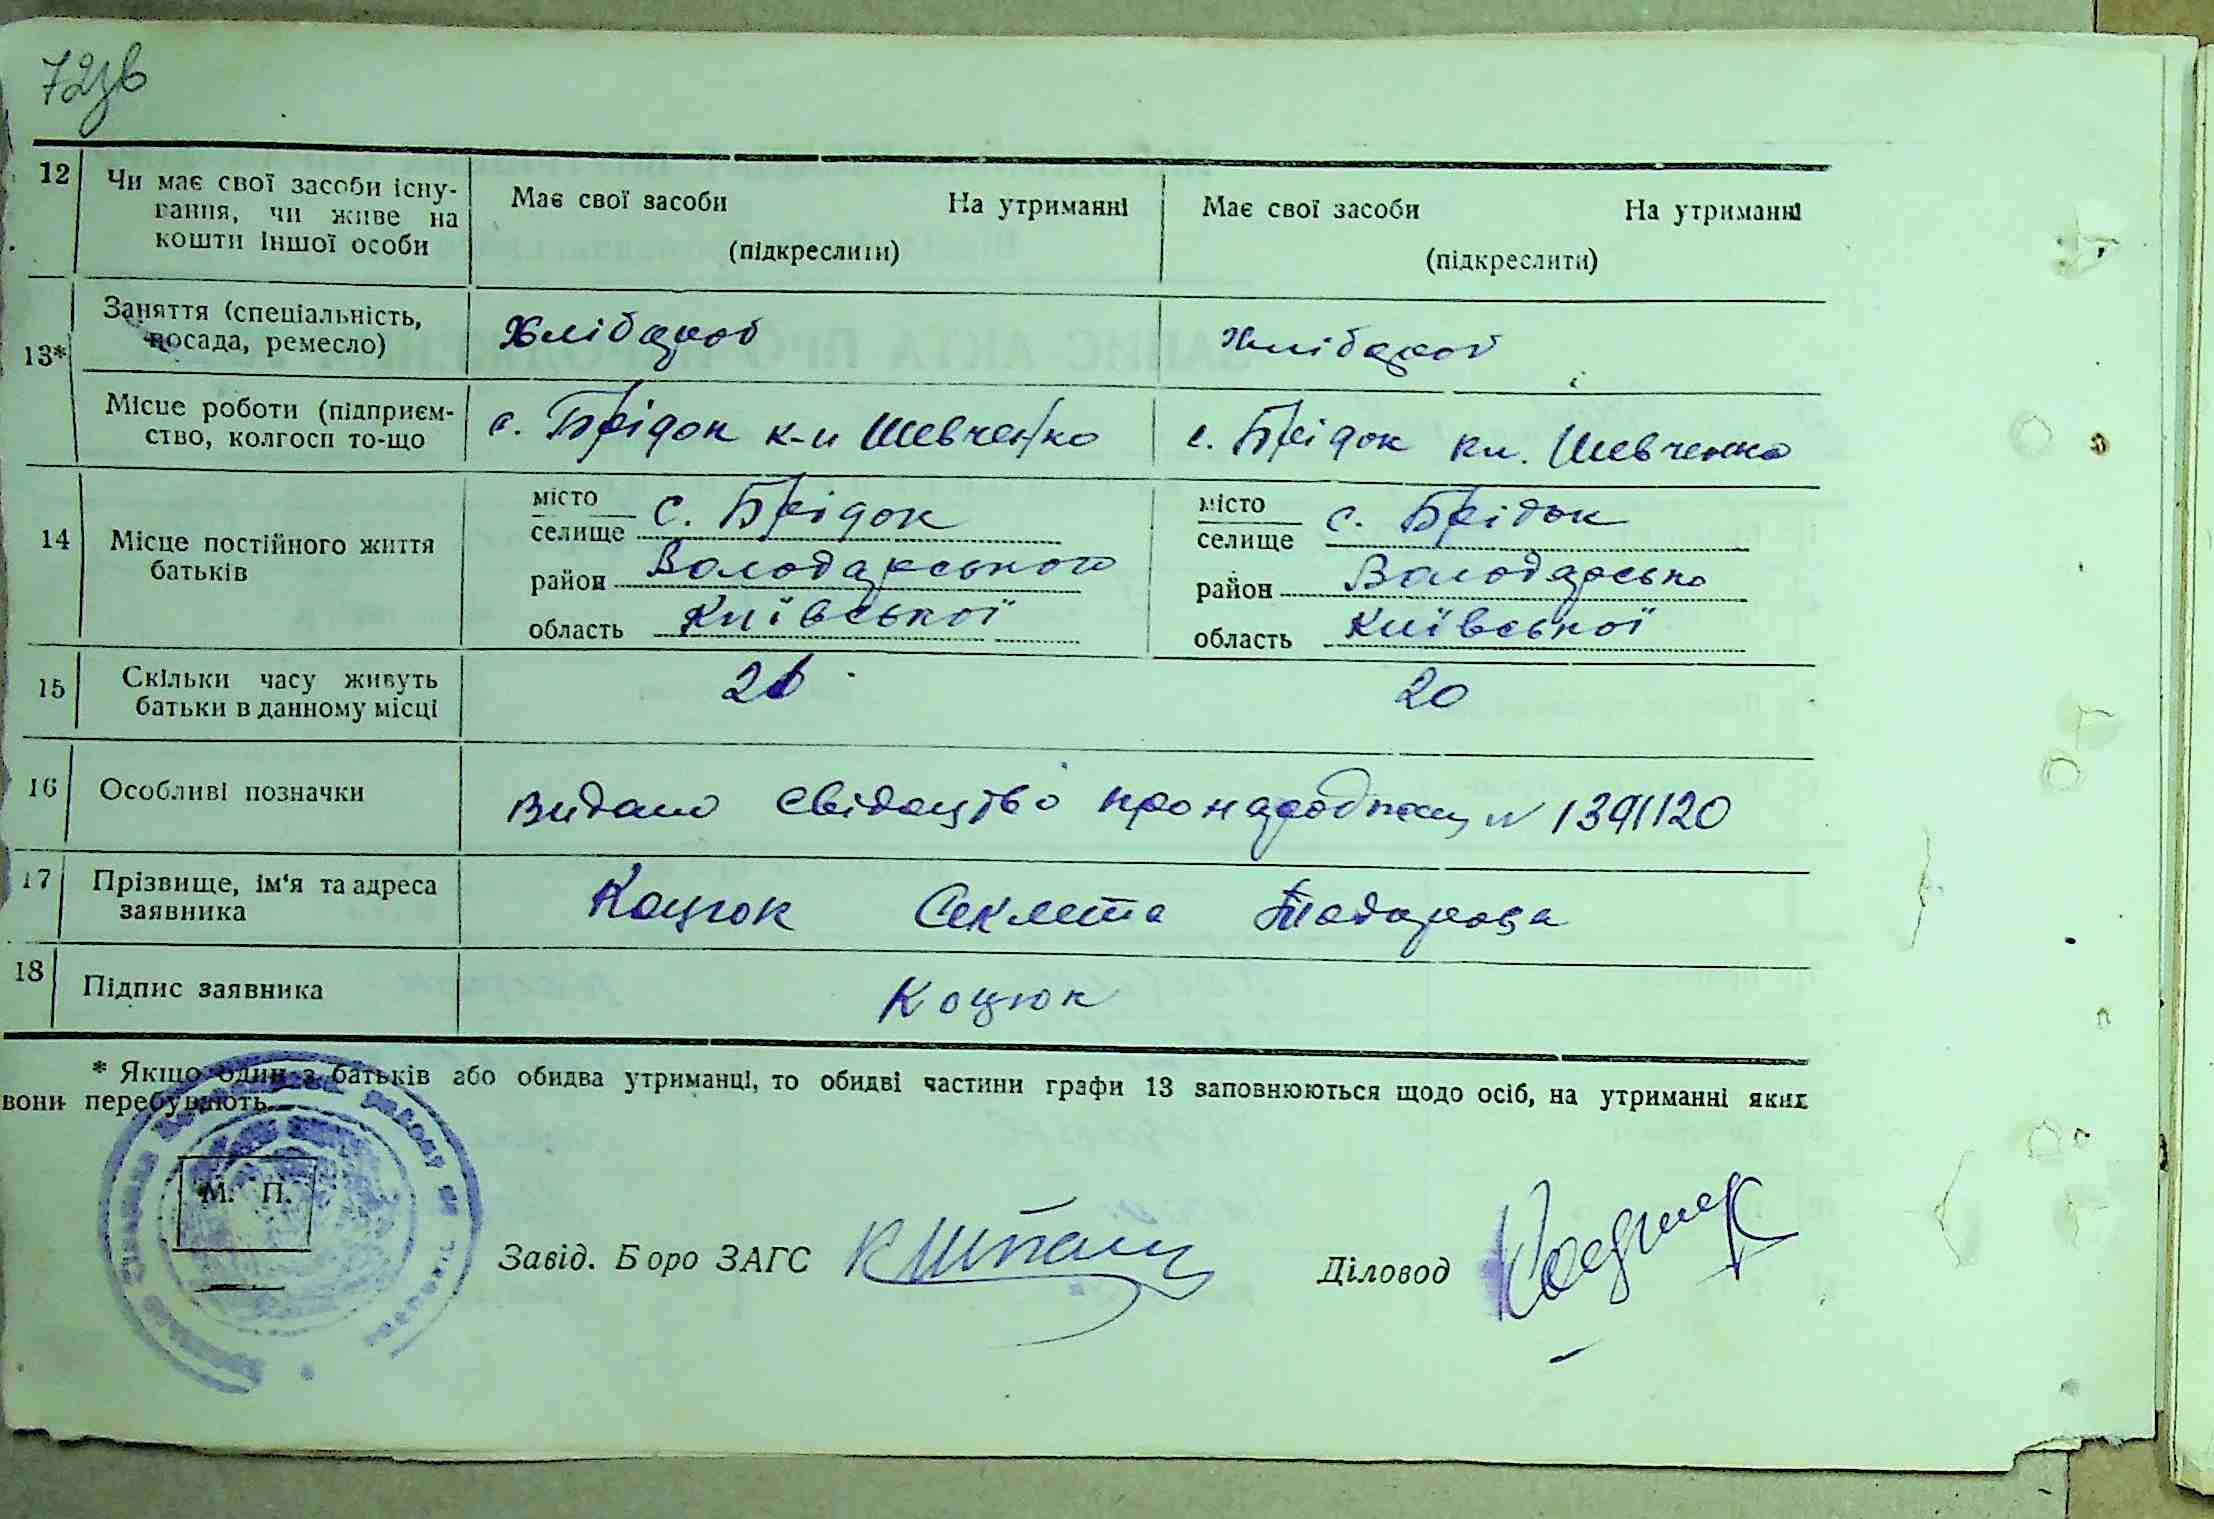 72зв
12 Чи має свої засоби існу-
вання, чи живе на
кошти іншої особи
Має свої засоби На утриманні
(підкреслити)
Має свої засоби На утриманні
(підкреслити)
13*
Заняття (спеціальність,
посада, ремесло)
Хлібароб
Хлібароб
Місце роботи (підприєм-
ство, колгосп то-що
с. Брідок к-п Шевченко
с. Брідок кл. Шевченко
14 Місце постійного життя
батьків
місто
селище с. Брідок
район Володарського
область Київської
місто
селище с. Брідок
район Володарсько
область Київської
15 Скільки часу живуть
батьки в данному місці
20
16 Особливі позначки
Видано свідоцтво про народженц № 1391120
17 Прізвище, ім'я та адреса
заявника
Коцюк Секлета
18 Підпис заявника
Коцюк
* Якщо один з батьків або обидва утриманці, то обидві частини графи 13 заповнюються щодо осіб, на утриманні яких
вони перебувають
М. П.
Завід. Боро ЗАГС
Діловод